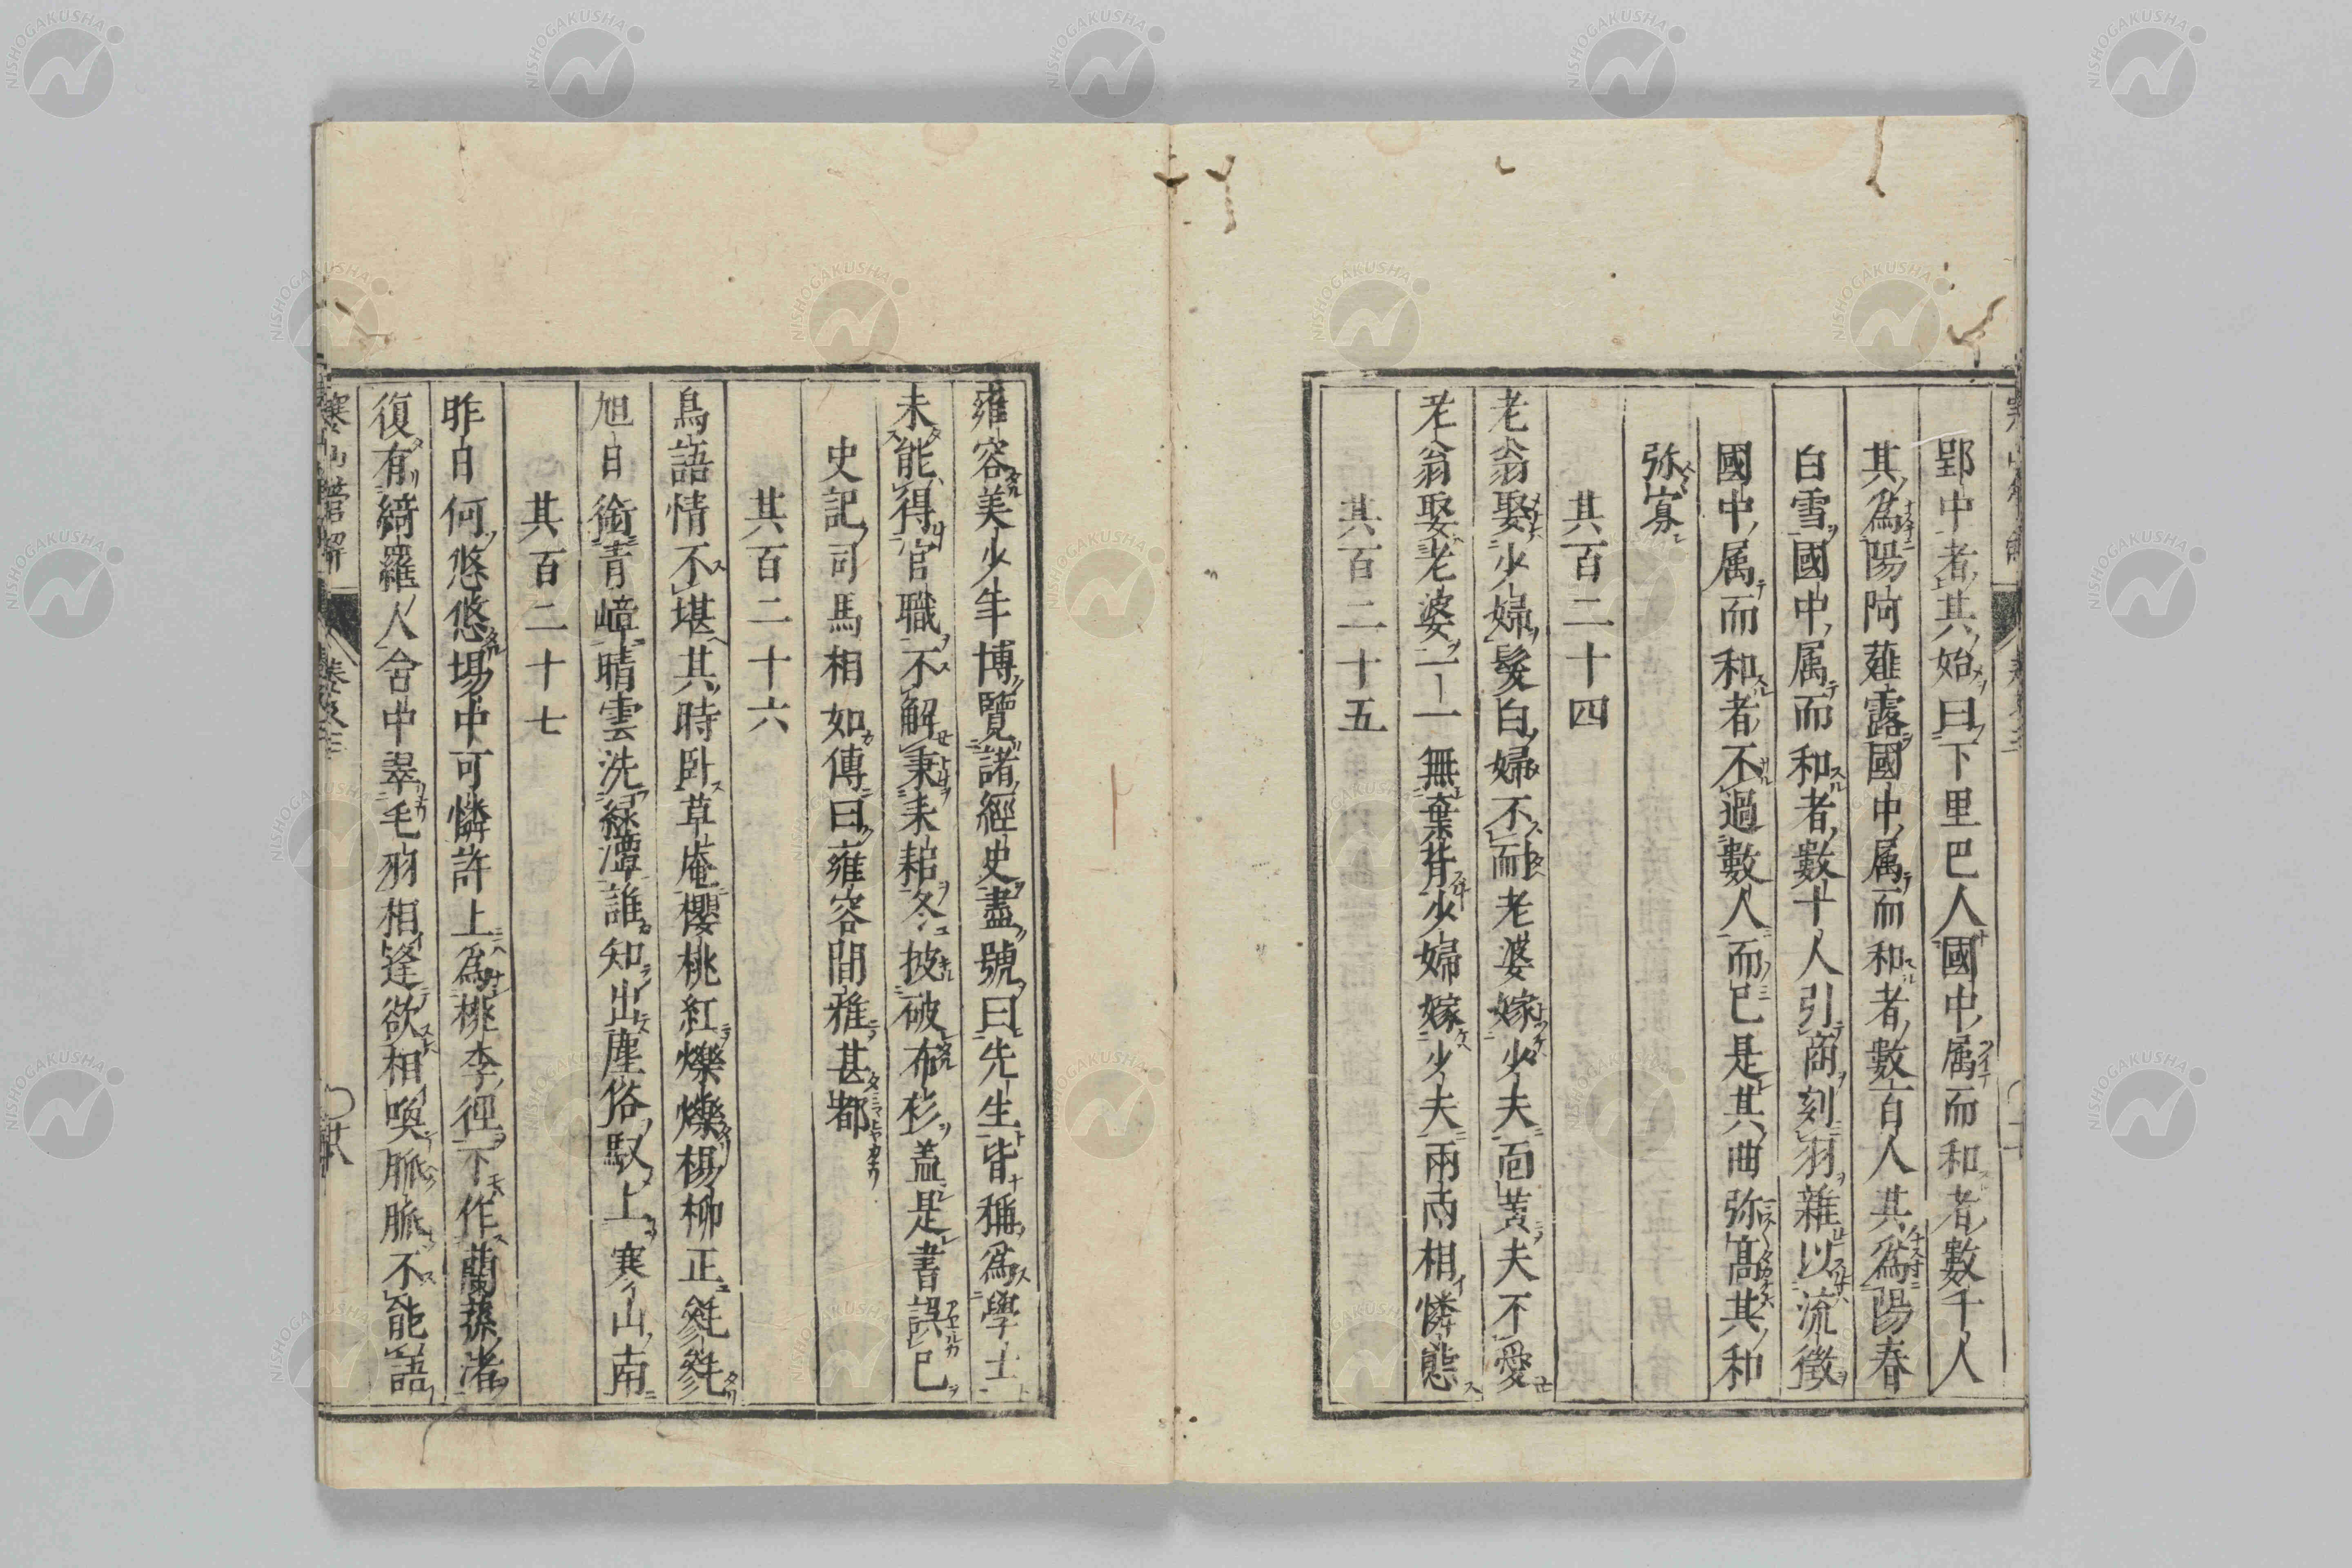 郢中者其始曰下里巴人國中属而和者數千人
其爲陽阿薤露國中属而和者數百人其爲陽春
白雪國中属而和者數十人引商刻羽雜以流徵
國中属而和者不過數人而已是其曲弥高其和
弥寡
其百二十四
老翁娶少婦髮白婦不耐老婆嫁少夫面黃夫不愛
老翁娶老婆一一無棄背少婦嫁少夫兩兩相憐態
其百二十五
雍容美少年博覽諸經史盡號曰先生皆稱爲學士
未能得官職不解秉耒耜冬披破布衫蓋是書誤已
史記司馬相如傳曰雍容間雅甚都
其百二十六
鳥語情不堪其時卧草庵櫻桃紅爍爍楊柳正毿毿
旭日銜青嶂晴雲洗綠潭誰知出塵俗馭上寒山南
其百二十七
昨日何悠悠場中可憐許上爲桃李徑下作蘭蓀渚
復有綺羅人舍中翠毛羽相逢欲相喚脈脈不能語
寒山詩 解 卷之三
NISHOGAKUSHA